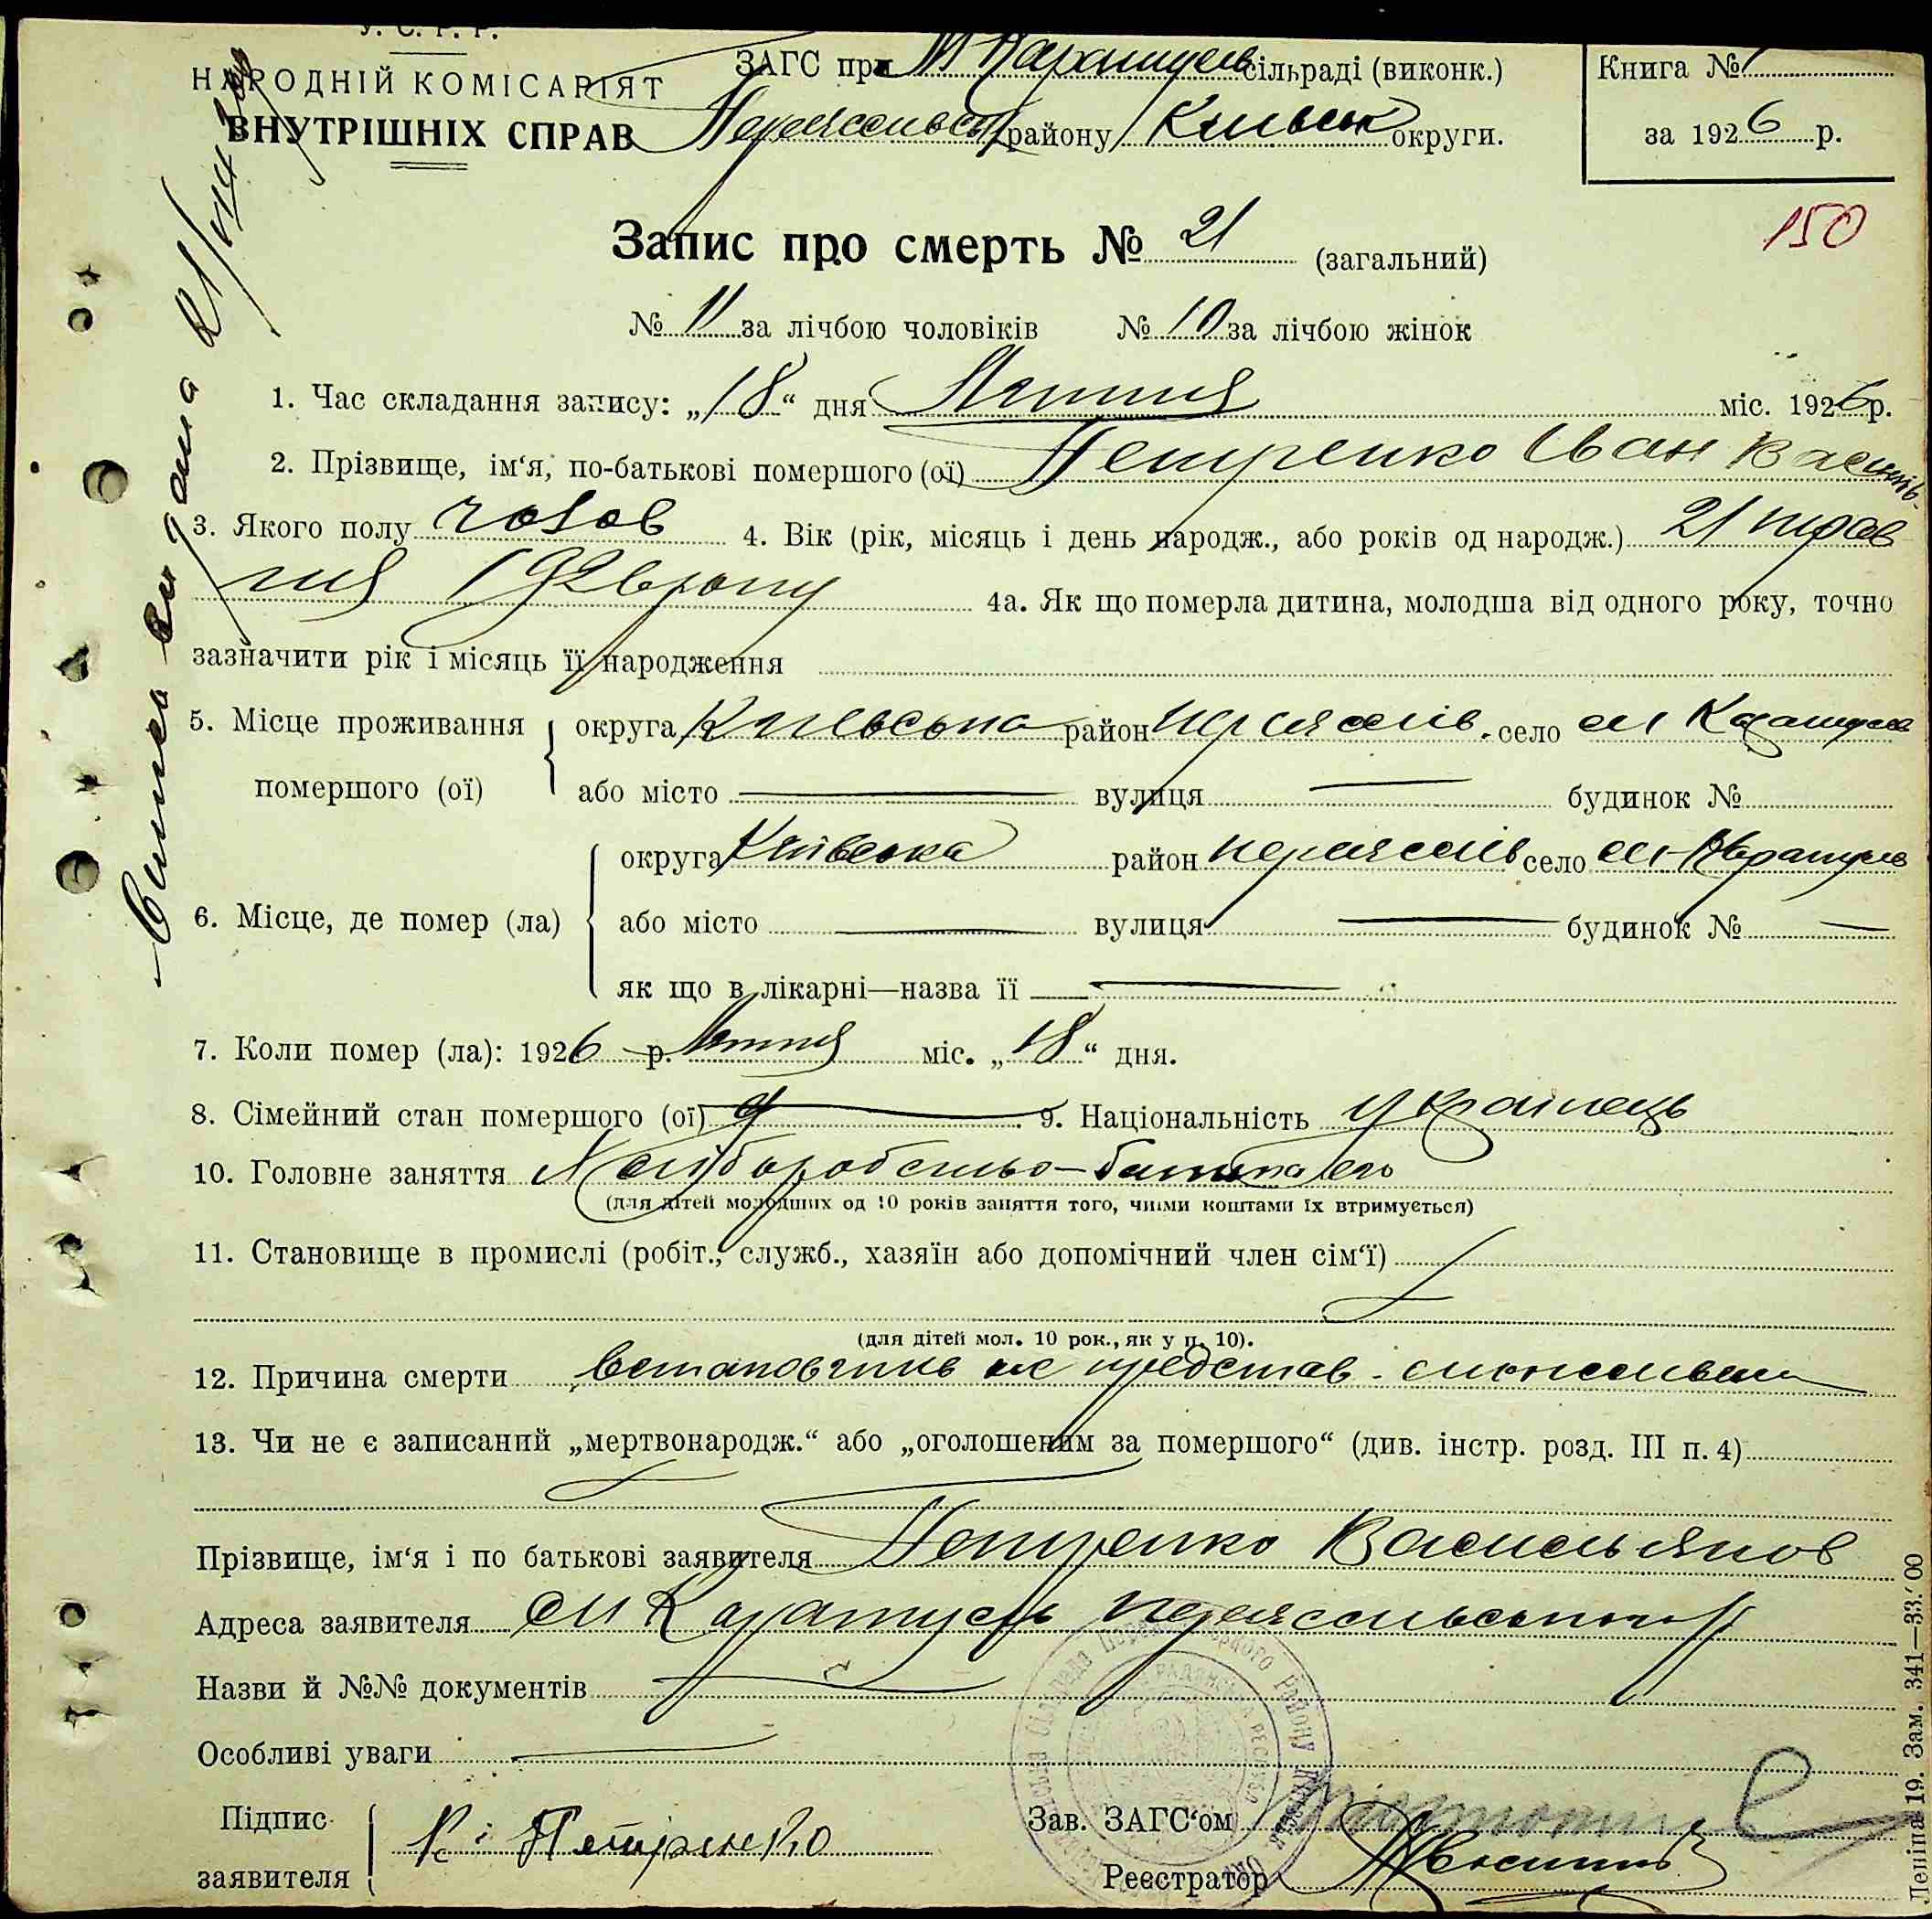 У. С. Р. Р.
НАРОДНІЙ КОМІСАРІЯТ
ВНУТРІШНІХ СПРАВ
ЗАГС при М Каратуль сільраді (виконк.)
району Київськ округи.
Книга № 1
за 1926 р.
150
Запис про смерть № 21 (загальний)
№ 11 за лічбою чоловіків № 10 за лічбою жінок
1. Час складання запису: „18“ дня Липня міс. 1926 р.
2. Прізвище, ім‘я, по-батькові помершого (ої) Петренко Іван Василів
3. Якого полу чолов 4. Вік (рік, місяць і день народж., або років од народж.) 21 трав
ня 1926 року 4а. Як що померла дитина, молодша від одного року, точно
зазначити рік і місяць її народження
5. Місце проживання помершого (ої) округа Київська район переяслів. село м Каратуль
або місто вулиця будинок №
6. Місце, де помер (ла) округа Київська район переяслів село м-Каратуль
або місто — вулиця — будинок № —
як що в лікарні—назва її —
7. Коли помер (ла): 1926 р. Липня міс. „18“ дня.
8. Сімейний стан помершого (ої) 9. Національність Українець
10. Головне заняття Хліборобство-батька його
(для дітей молодших од 10 років заняття того, чиїми коштами їх втримується)
11. Становище в промислі (робіт., служб., хазяїн або допомічний член сім‘ї)
(для дітей мол. 10 рок., як у п. 10).
12. Причина смерти не представ.
13. Чи не є записаний „мертвонародж.“ або „оголошеним за помершого“ (див. інстр. розд. III п. 4)
Прізвище, ім‘я і по батькові заявителя Петренко Василь
Адреса заявителя м Каратуль
Назви й №№ документів
Особливі уваги
Підпис заявителя Петренко
Зав. ЗАГС‘ом
Реєстратор
Леніна 19. Зам. 341—33.′00